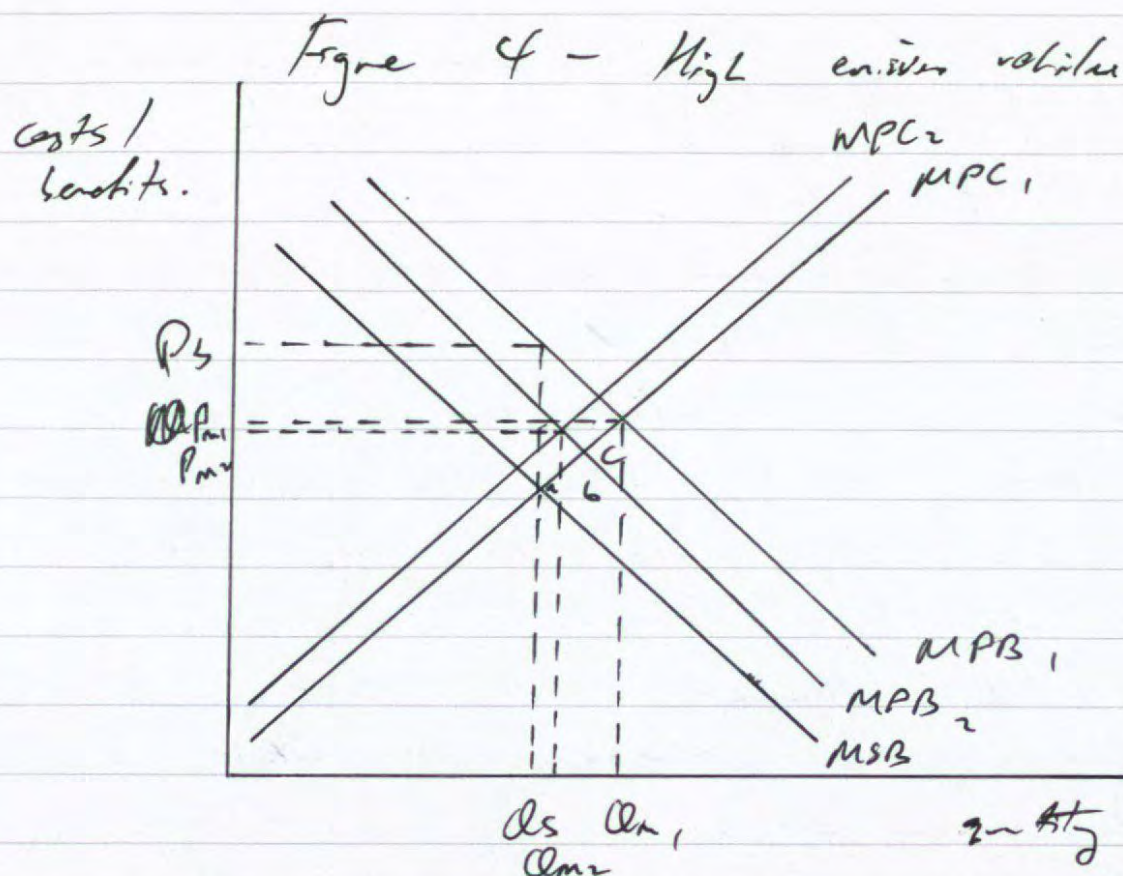 Figure 4 - High emission vehicles
costs/
benefits.
MPC2
MPC1
Ps
Pm1
Pm2
a b c
MPB1
MPB2
MSB
Qs Qm1
Qm2
quantity